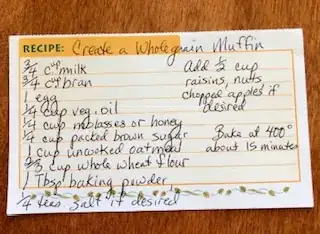 RECIPE: Create a Wholegrain Muffin
3/4 cup milk
3/4 cup bran
1 egg
1/4 cup veg. oil
1/4 cup molasses or honey
1/4 cup packed brown sugar
1 cup uncooked oatmeal
2/3 cup whole wheat flour
1 Tbsp baking powder
1/4 teas. salt if desired
Add 1/2 cup
raisins, nuts,
chopped apples if
desired
Bake at 400°
about 15 minutes